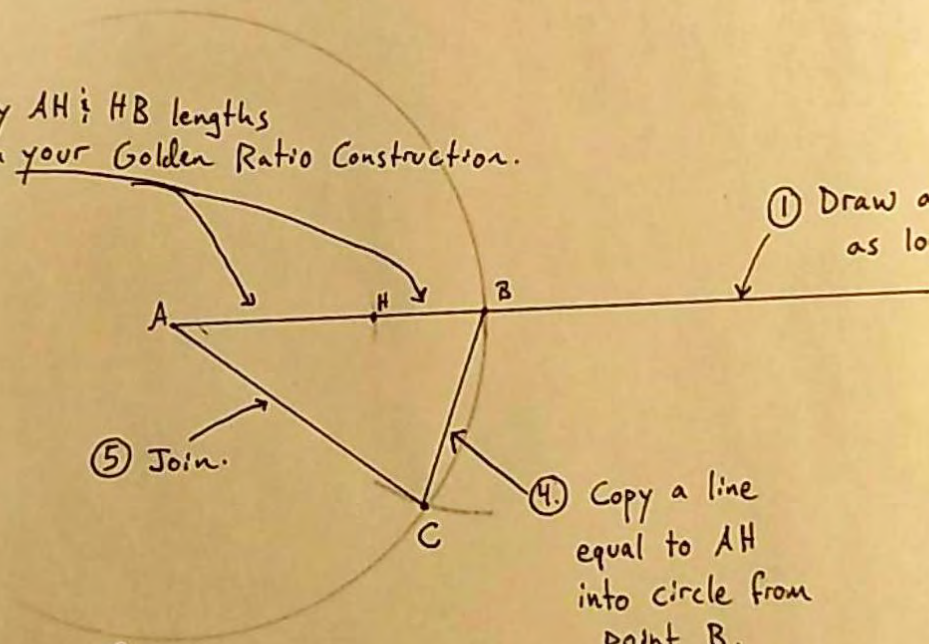 AH & HB lengths
your Golden Ratio Construction.
① Draw a
as lo
A
H
B
⑤ Join.
C
④. Copy a line
equal to AH
into circle from
point B.